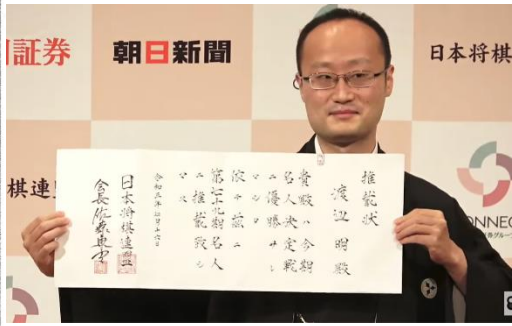 証券
朝日新聞
日本将棋
棋連
ONNEC
推戴状
渡辺明殿
貴殿ハ今期
名人決定戦
ニ優勝サレ
依テ茲ニ
第七十九期名人
ニ推戴致シ
マス
日本将棋連盟
会長佐藤康光